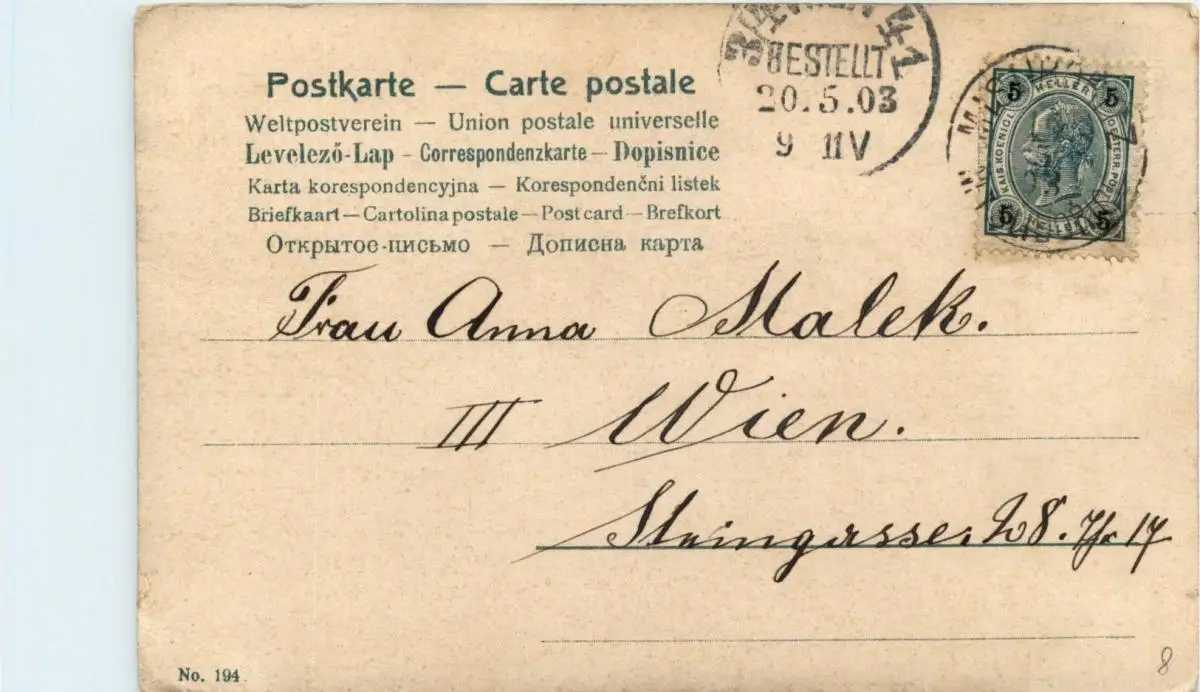 3/1 WIEN 41
BESTELLT
20.5.03
9 11V
Postkarte — Carte postale
Weltpostverein — Union postale universelle
Levelező-Lap - Correspondenzkarte — Dopisnice
Karta korespondencyjna — Korespondenčni listek
Briefkaart — Cartolina postale — Post card — Brefkort
Открытое-письмо — Дописна карта
5 HELLER 5
KAIS. KOENIGL. OESTERR. POST
5 HELLER 5
Frau Anna Malek.
III Wien.
Steingasse. 28. Thr 17
No. 194
8